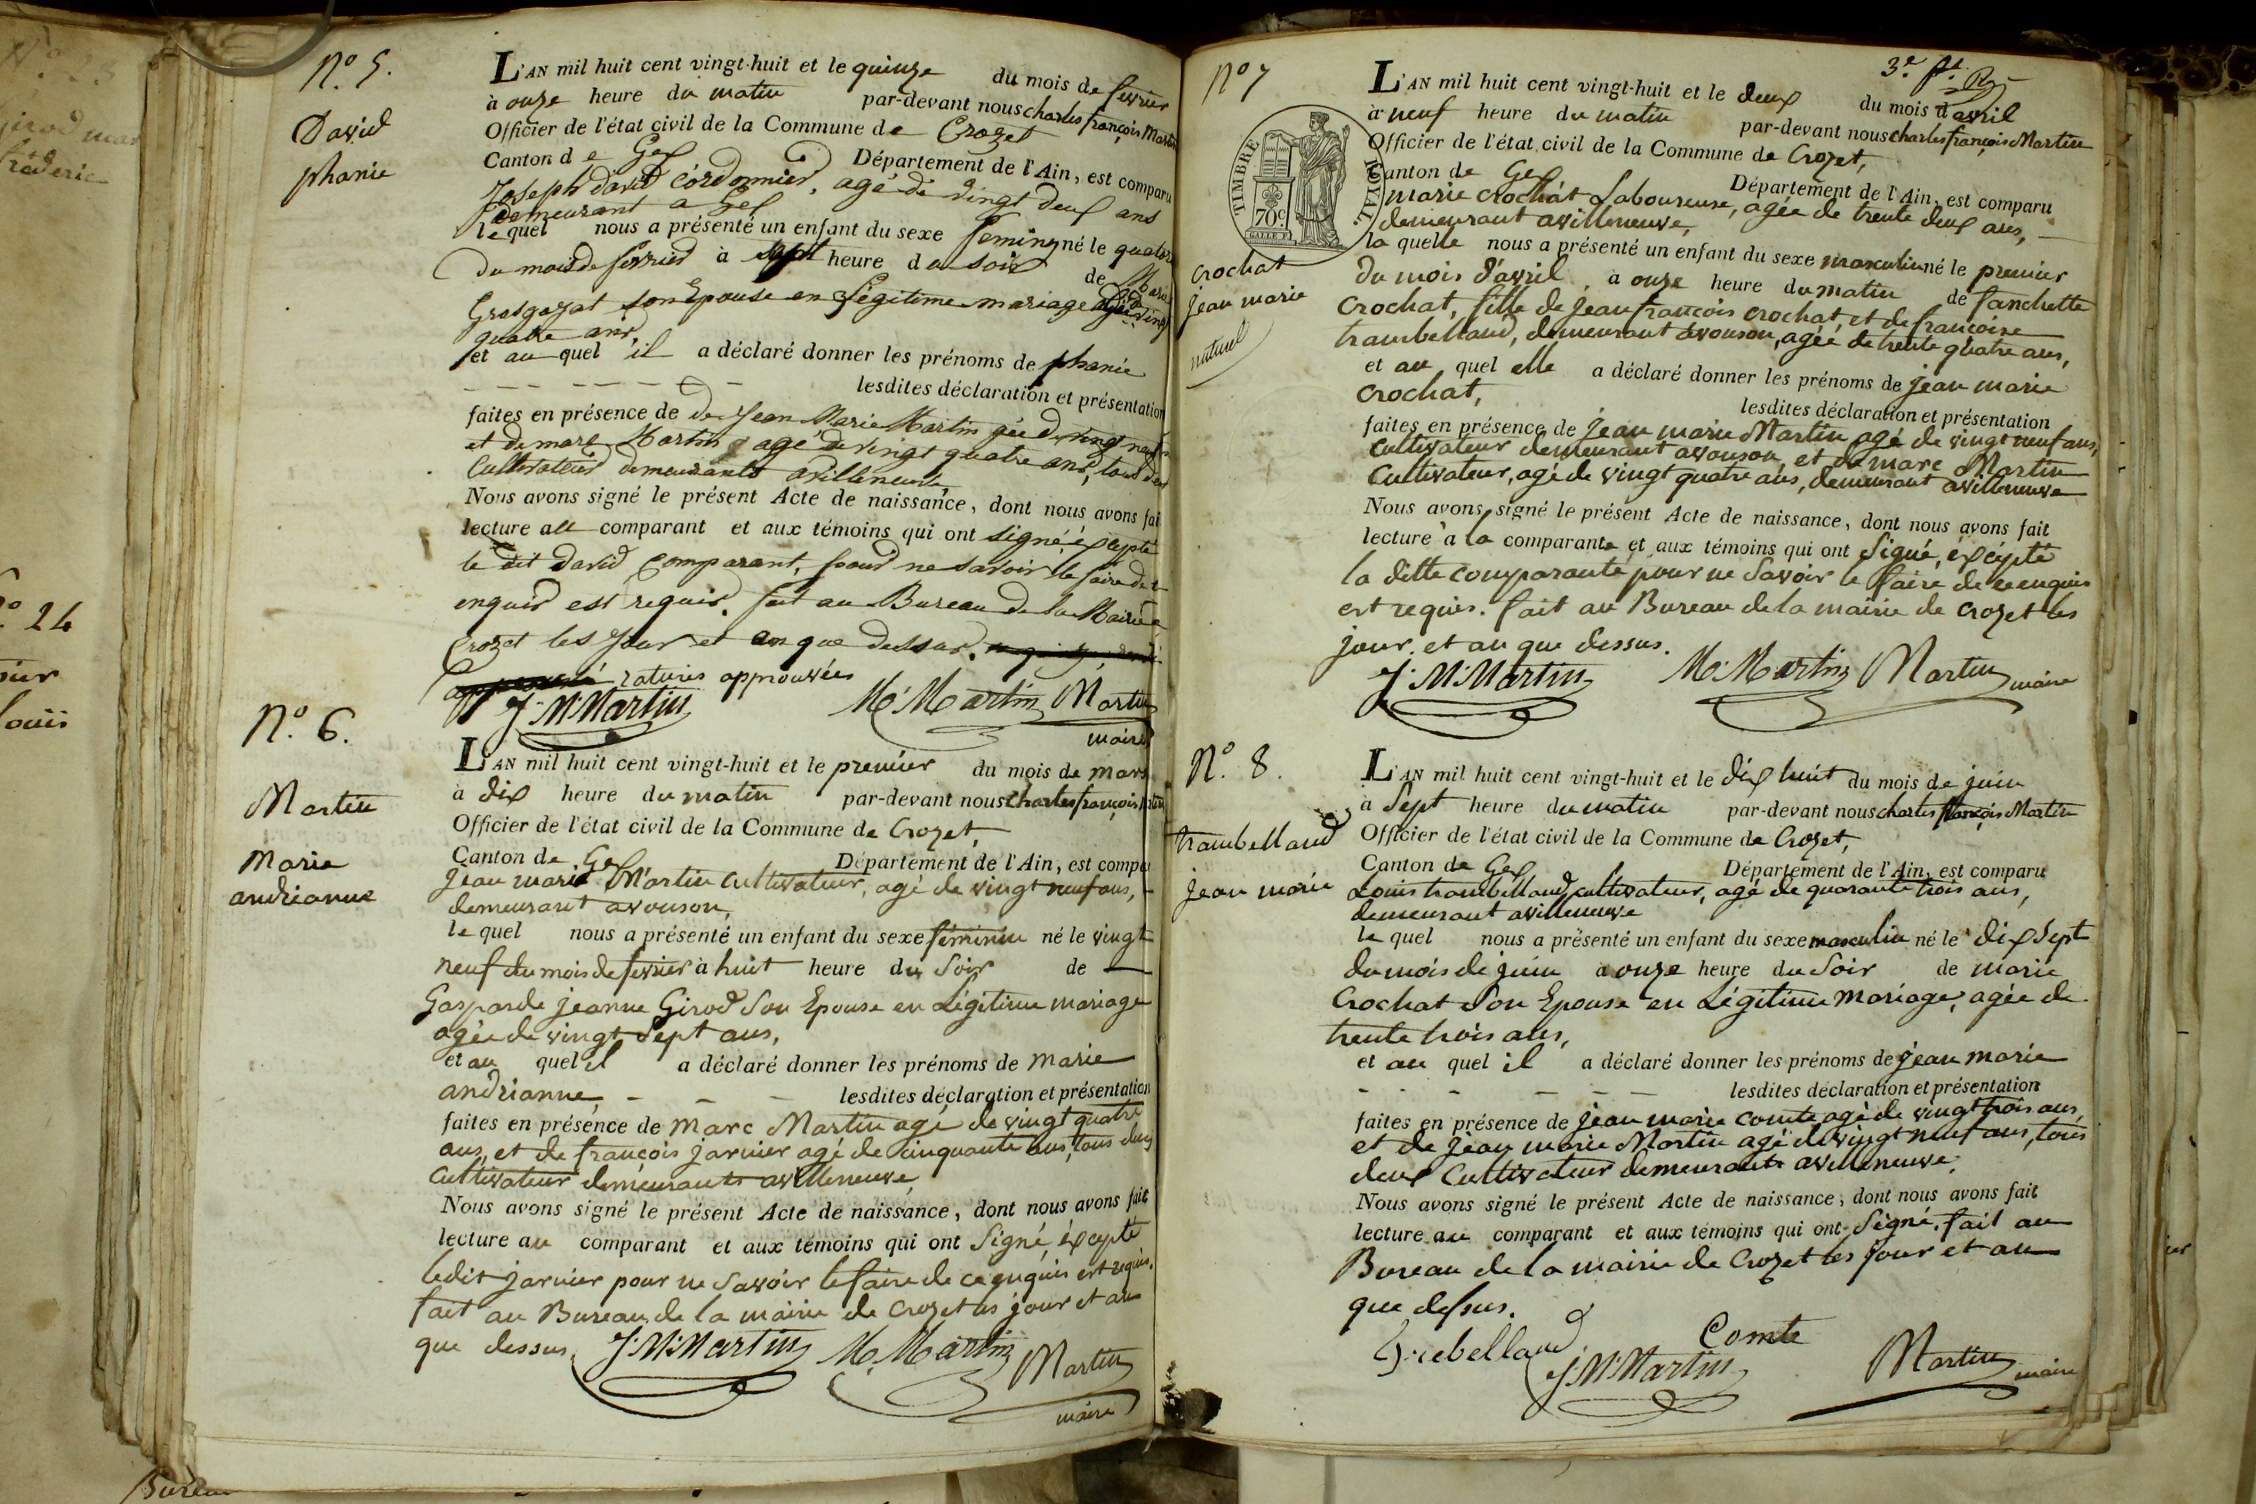 N.º 5.
David
phanie
L'AN mil huit cent vingt-huit et le quinze du mois de fevrier
à onze heure du matin par-devant nous charles françois Martin
Officier de l'état civil de la Commune de Crozet
Canton de Gex Département de l'Ain, est comparu
Joseph david cordonnier, agé de vingt deux ans
demeurant a Gex
lequel nous a présenté un enfant du sexe feminin né le quatorze
du mois de fevrier à sept heure du soir de Marie
Grosgojat son Epouse en Légitime mariage agée de vingt
quatre ans
et au quel il a déclaré donner les prénoms de phanie
lesdites déclaration et présentation
faites en présence de de Jean Marie Martin gée de vingt neuf
et de marc Martin agé de vingt quatre ans, tous deux
Cultivateur demeurants a villeneuve
Nous avons signé le présent Acte de naissance, dont nous avons fait
lecture au comparant et aux témoins qui ont signé, éxcepté
le dit david comparant, pour ne savoir le faire de ce
enquis est requis. fait au Bureau de la Mairie
Crozet les jour et an que dessus.
ratures approuvées
J. M. Martin M. Martin Martin
maire
N.º 6.
Martin
Marie
andrianne
L'AN mil huit cent vingt-huit et le premier du mois de mars
à dix heure du matin par-devant nous charles françois Martin
Officier de l'état civil de la Commune de Crozet,
Canton de Gex Département de l'Ain, est compa
jean marie Martin cultivateur, agé de vingt neuf ans,
demeurant avouson,
le quel nous a présenté un enfant du sexe féminin né le vingt
neuf du mois de fevrier à huit heure du soir de
Gasparde jeanne Girod son Epouse en Légitime mariage
agée de vingt sept ans,
et au quel il a déclaré donner les prénoms de marie
andrianne, lesdites déclaration et présentation
faites en présence de marc Martin agé de vingt quatre
ans, et de françois jarnier agé de cinquante ans, tous deux
Cultivateur demeurants avilleneuve,
Nous avons signé le présent Acte de naissance, dont nous avons fait
lecture au comparant et aux témoins qui ont signé, éxcepté
ledit jarnier pour ne savoir le faire de ce enquis est requis.
fait au Bureau de la mairie de Crozet les jour et an
que dessus.
J. M. Martin M. Martin Martin
maire
3.e
N.º 7
TIMBRE ROYAL.
70 c.
crochat
jean marie
naturel
L'AN mil huit cent vingt-huit et le deux du mois d'avril
à neuf heure du matin par-devant nous charles françois Martin
Officier de l'état civil de la Commune de Crozet,
Canton de Gex Département de l'Ain, est comparu
marie crochat Laboureuse, agée de trente deux ans,
demeurant avilleneuve,
la quelle nous a présenté un enfant du sexe masculin né le premier
du mois d'avril à onze heure du matin de fanchette
crochat, fille de jean françois crochat, et de françoise
trambelland, demeurant avouson, agée de trente quatre ans,
et au quel elle a déclaré donner les prénoms de jean marie
crochat,
lesdites déclaration et présentation
faites en présence de jean marie Martin agé de vingt neuf ans,
cultivateur demeurant avouson, et de marc Martin
Cultivateur, agé de vingt quatre ans, demeurant avilleneuve
Nous avons signé le présent Acte de naissance, dont nous avons fait
lecture à la comparante et aux témoins qui ont signé, éxcépté
la ditte comparante pour ne savoir le faire de ce enquis
est requis. fait au Bureau de la mairie de crozet les
jour et an que dessus.
J. M. Martin M. Martin Martin maire
N.º 8.
trambelland
jean marie
L'AN mil huit cent vingt-huit et le dix huit du mois de juin
à sept heure du matin par-devant nous charles françois Martin
Officier de l'état civil de la Commune de Crozet,
Canton de Gex Département de l'Ain, est comparu
Louis trambelland cultivateur, agé de quarante trois ans,
demeurant avilleneuve
le quel nous a présenté un enfant du sexe masculin né le dix sept
du mois de juin a onze heure du soir de marie
Crochat son Epouse en Légitime mariage, agée de
trente trois ans,
et au quel il a déclaré donner les prénoms de jean marie
lesdites déclaration et présentation
faites en présence de jean marie comte agé de vingt trois ans,
et de jean marie Martin agé de vingt neuf ans, tous
deux Cultivateur demeurants avilleneuve,
Nous avons signé le présent Acte de naissance, dont nous avons fait
lecture au comparant et aux témoins qui ont signé. fait au
Bureau de la mairie de Crozet les jour et an
que dessus.
Comte
J. M. Martin Martin maire